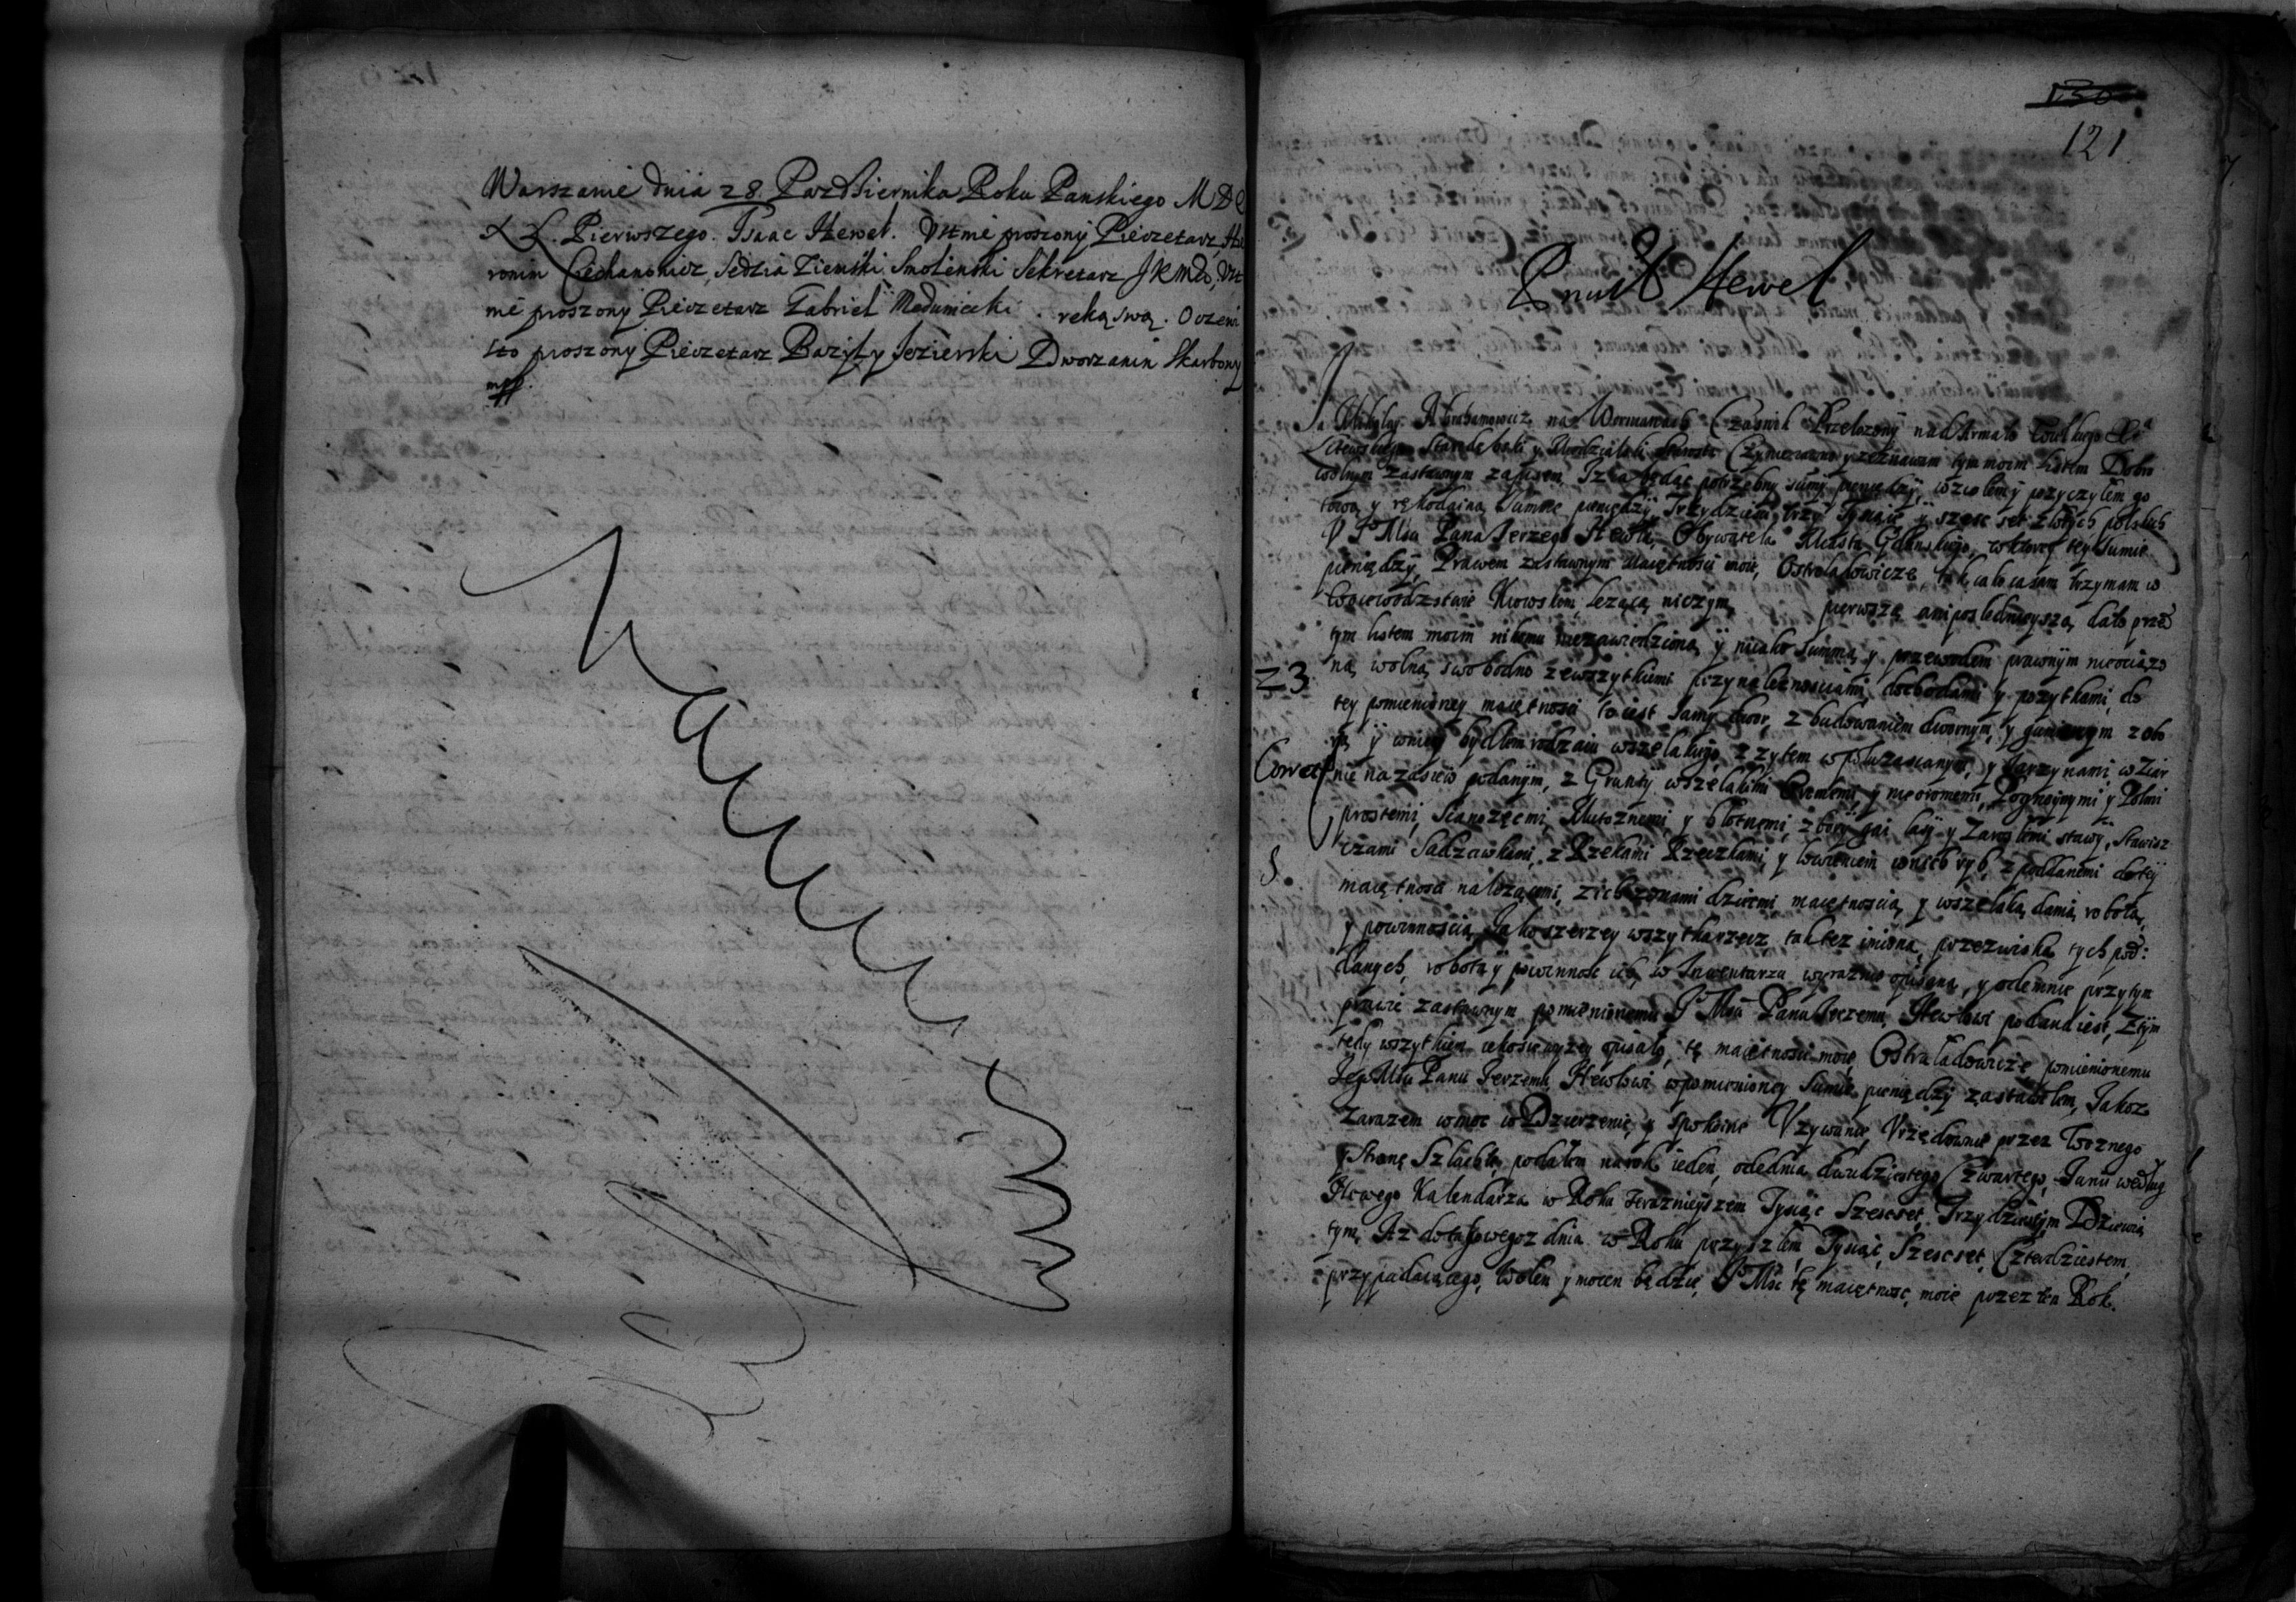 Warszawie dnia 28. Pazdziernika Roku Panskiego MDC
XL. Pierwszego. Isaac Hewel. Vstnie proszony Pieczetarz, Hie
ronim Ciechanowicz, Sedzia Ziemski Smolenski Sekretarz JKMci, Vst
nie proszony Pieczetarz Gabriel ręką swą. Oczewi
sto proszony Pieczetarz Bazyly Jezierski Dworzanin Skarbony
mpp.
130
121
Hewel
Ja Mikolay Abrahamowicz na Wornianach Czesnik Przelozony nad Armatą Wielkiego
Starodubski y Starosta zeznawam tym moim listem Dobro
wolnym Zastawnym zapisem, Iz ia będąc potrzebny sumy pieniędzy, wziolem y pozyczylem go
tową y rękodaina Summe pieniędzy Trzydziesci trzy Tysiące y szesc set zlotych polskich
V Je Msci Pana Jerzego Hewla, Obywatela Miasta Gdanskiego, w ktorey tey Sumie
pieniędzy Prawem zastawnym Maiętnosci moie, Ostroladowicze, tak iako ia sam trzymam w
Woiewodzstwie lezącą niczym pierwszą ani posledneyszą dato przed
tym listem moim nikomu niezawiedzioną, y niiako Summą, y przewodem prawnym nieociązo
ną wolną swobodno zewszytkiemi przynaleznosciami dochodami y pozytkami, do
23
tey pomienioney maiętnosci to iest samy dwor, z budowaniem dwornym, y gumiennym z obo
rą y w niey bydlem rodzaiu wszelakiego z zytem w polu zasianym, y Jarzynami w Ziar
nie na zasiew podanym, z Grunty wszelakimi Oremami y nieoromemi, y Polmi
prostemi, Sianozęcmi, y blotnemi, z bory gai lasy y Zaroslemi stawy, Stawisz
czami Sadzawkami, z Rzekami Rzeczkami, y lowieniem w nich ryb, z poddanemi do tey
S.
maiętnosci nalezącemi, z ich zonami dziecmi maiętnoscią, y wszelaką danią robotą,
y powinnoscią, Jako szerzey wszytka rzecz, tak tez imiona, przezwiska tych pod:
danych, robota y powinnosc ich, w Inwentarzu wyraznie opisana, y odemnie przy tym
prawie zastawnym pomienionemu Je Msci Panu Jerzemu Hewlowi podana iest, Z tym
tedy wszytkiem iako się wyzey opisalo, tę maiętnosc moię Ostroladowicze pomienionemu
Jego Msci Panu Jerzemu Hewlowi w pomienioney Sumie pieniędzy zastawilem, Jakoz
Zarazem w moc w Dzierzenie, y spokoine Vzywanie Vrzędownie przez Woznego
y Stronę Szlachtę podalem na rok ieden, od dnia dwudziestego Czwartego, Junii według
Nowego Kalendarza w Roku teraznieyszem Tysiąc Szescset Trzydziestym Dziewią
tym, Az do takowegoz dnia w Roku przyszlem Tysiąc Szescset Czterdziestem
przypadaiącego, Wolen y mocen będzie Je Msc tę maiętnosc moię przez ten Rok.